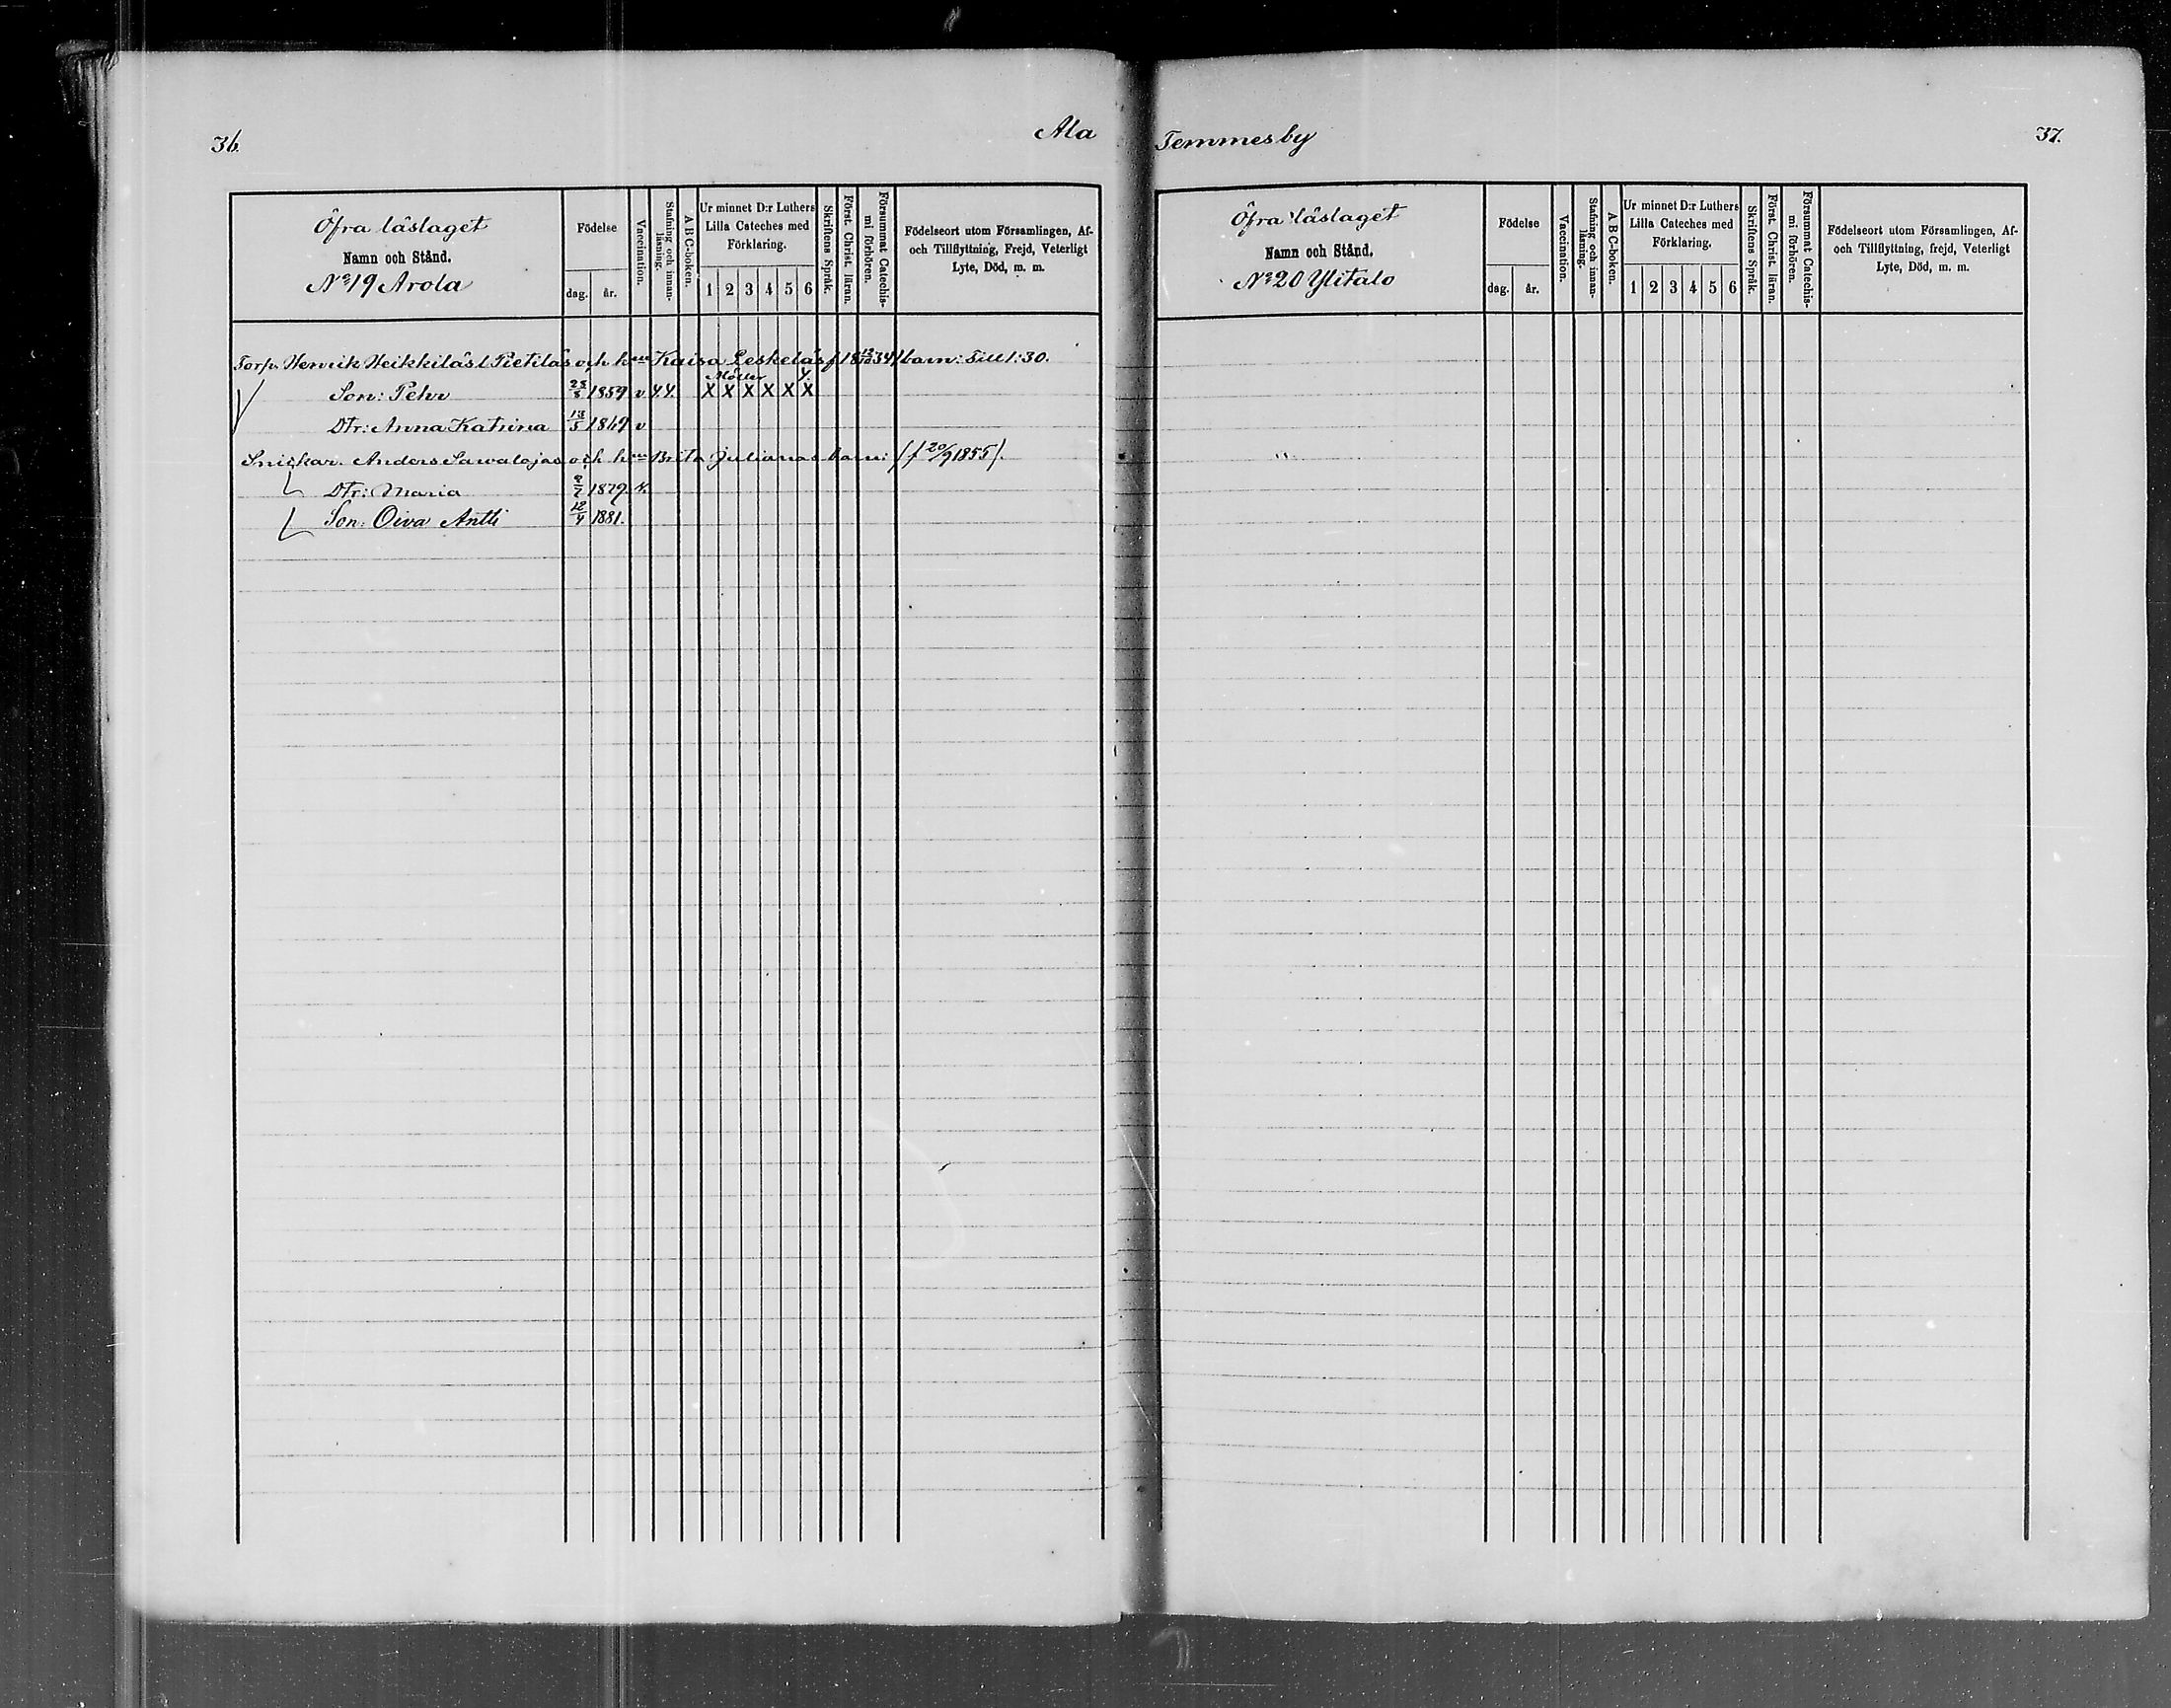 36.
Ala
Öfra låslaget
Namn och Stånd.
No 19 Arola
Födelse
dag. år.
Vaccination.
Stafning och innan-
läsning.
A B C-boken.
Ur minnet D:r Luthers
Lilla Cateches med
Förklaring.
1 2 3 4 5 6
Skriftens Språk.
Först. Christ. läran.
Försummat Catechis-
mi förhören.
Födelseort utom Församlingen, Af-
och Tillflyttning, Frejd, Veterligt
Lyte, Död, m. m.
Torp. Henrik Heikkiläs l. Pietiläs och hm Kaisa Leskeläs f 18 12/12 34) barn: Till 1:30.
Möller Y.
Son: Pehr 1859 v Y.Y. X X X X X X
Dtr: Anna Katrina 13/5 1869 v
Snickar. Anders Sawalojas och hm Brita Julianas barn: (f 20/9 1855).
Dtr: Maria 1879. v.
Son: Oiva Antti 12/4 1881.
Temmesby
37.
Öfra låslaget
Namn och Stånd.
No 20 Ylitalo
Födelse
dag. år.
Vaccination.
Stafning och innan-
läsning.
A B C-boken.
Ur minnet D:r Luthers
Lilla Cateches med
Förklaring.
1 2 3 4 5 6
Skriftens Språk.
Först. Christ. läran.
Försummat Catechis-
mi förhören.
Födelseort utom Församlingen, Af-
och Tillflyttning, frejd, Veterligt
Lyte, Död, m. m.